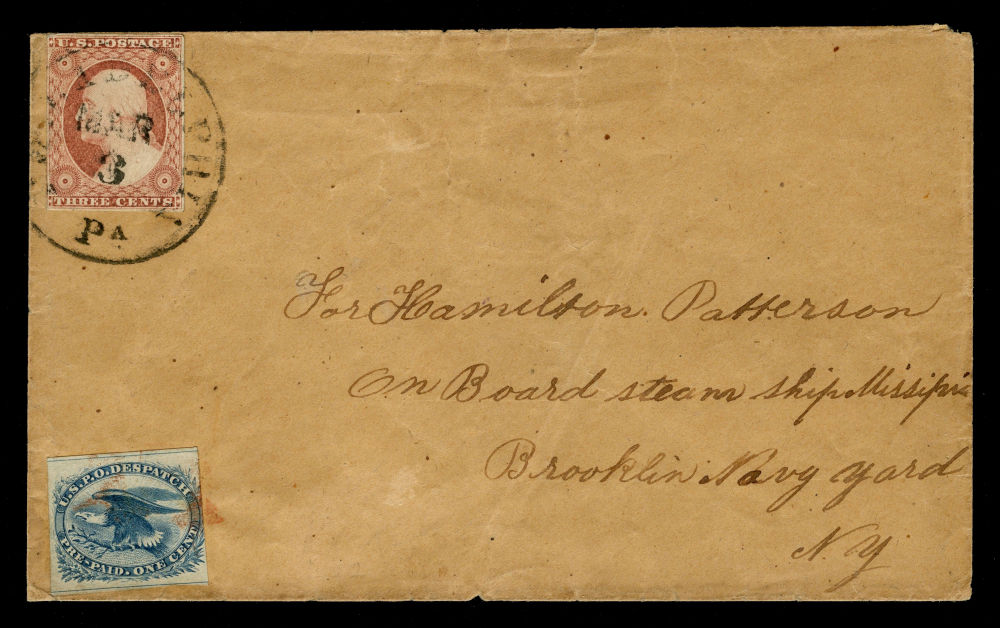 U.S. POSTAGE
PHILADELPHIA
MAR
3
THREE CENTS
Pa
For Hamilton Patterson
On Board steam ship Missipi
Brooklin Navy yard
N Y
U.S.P.O. DESPATCH
PRE-PAID. ONE CENT